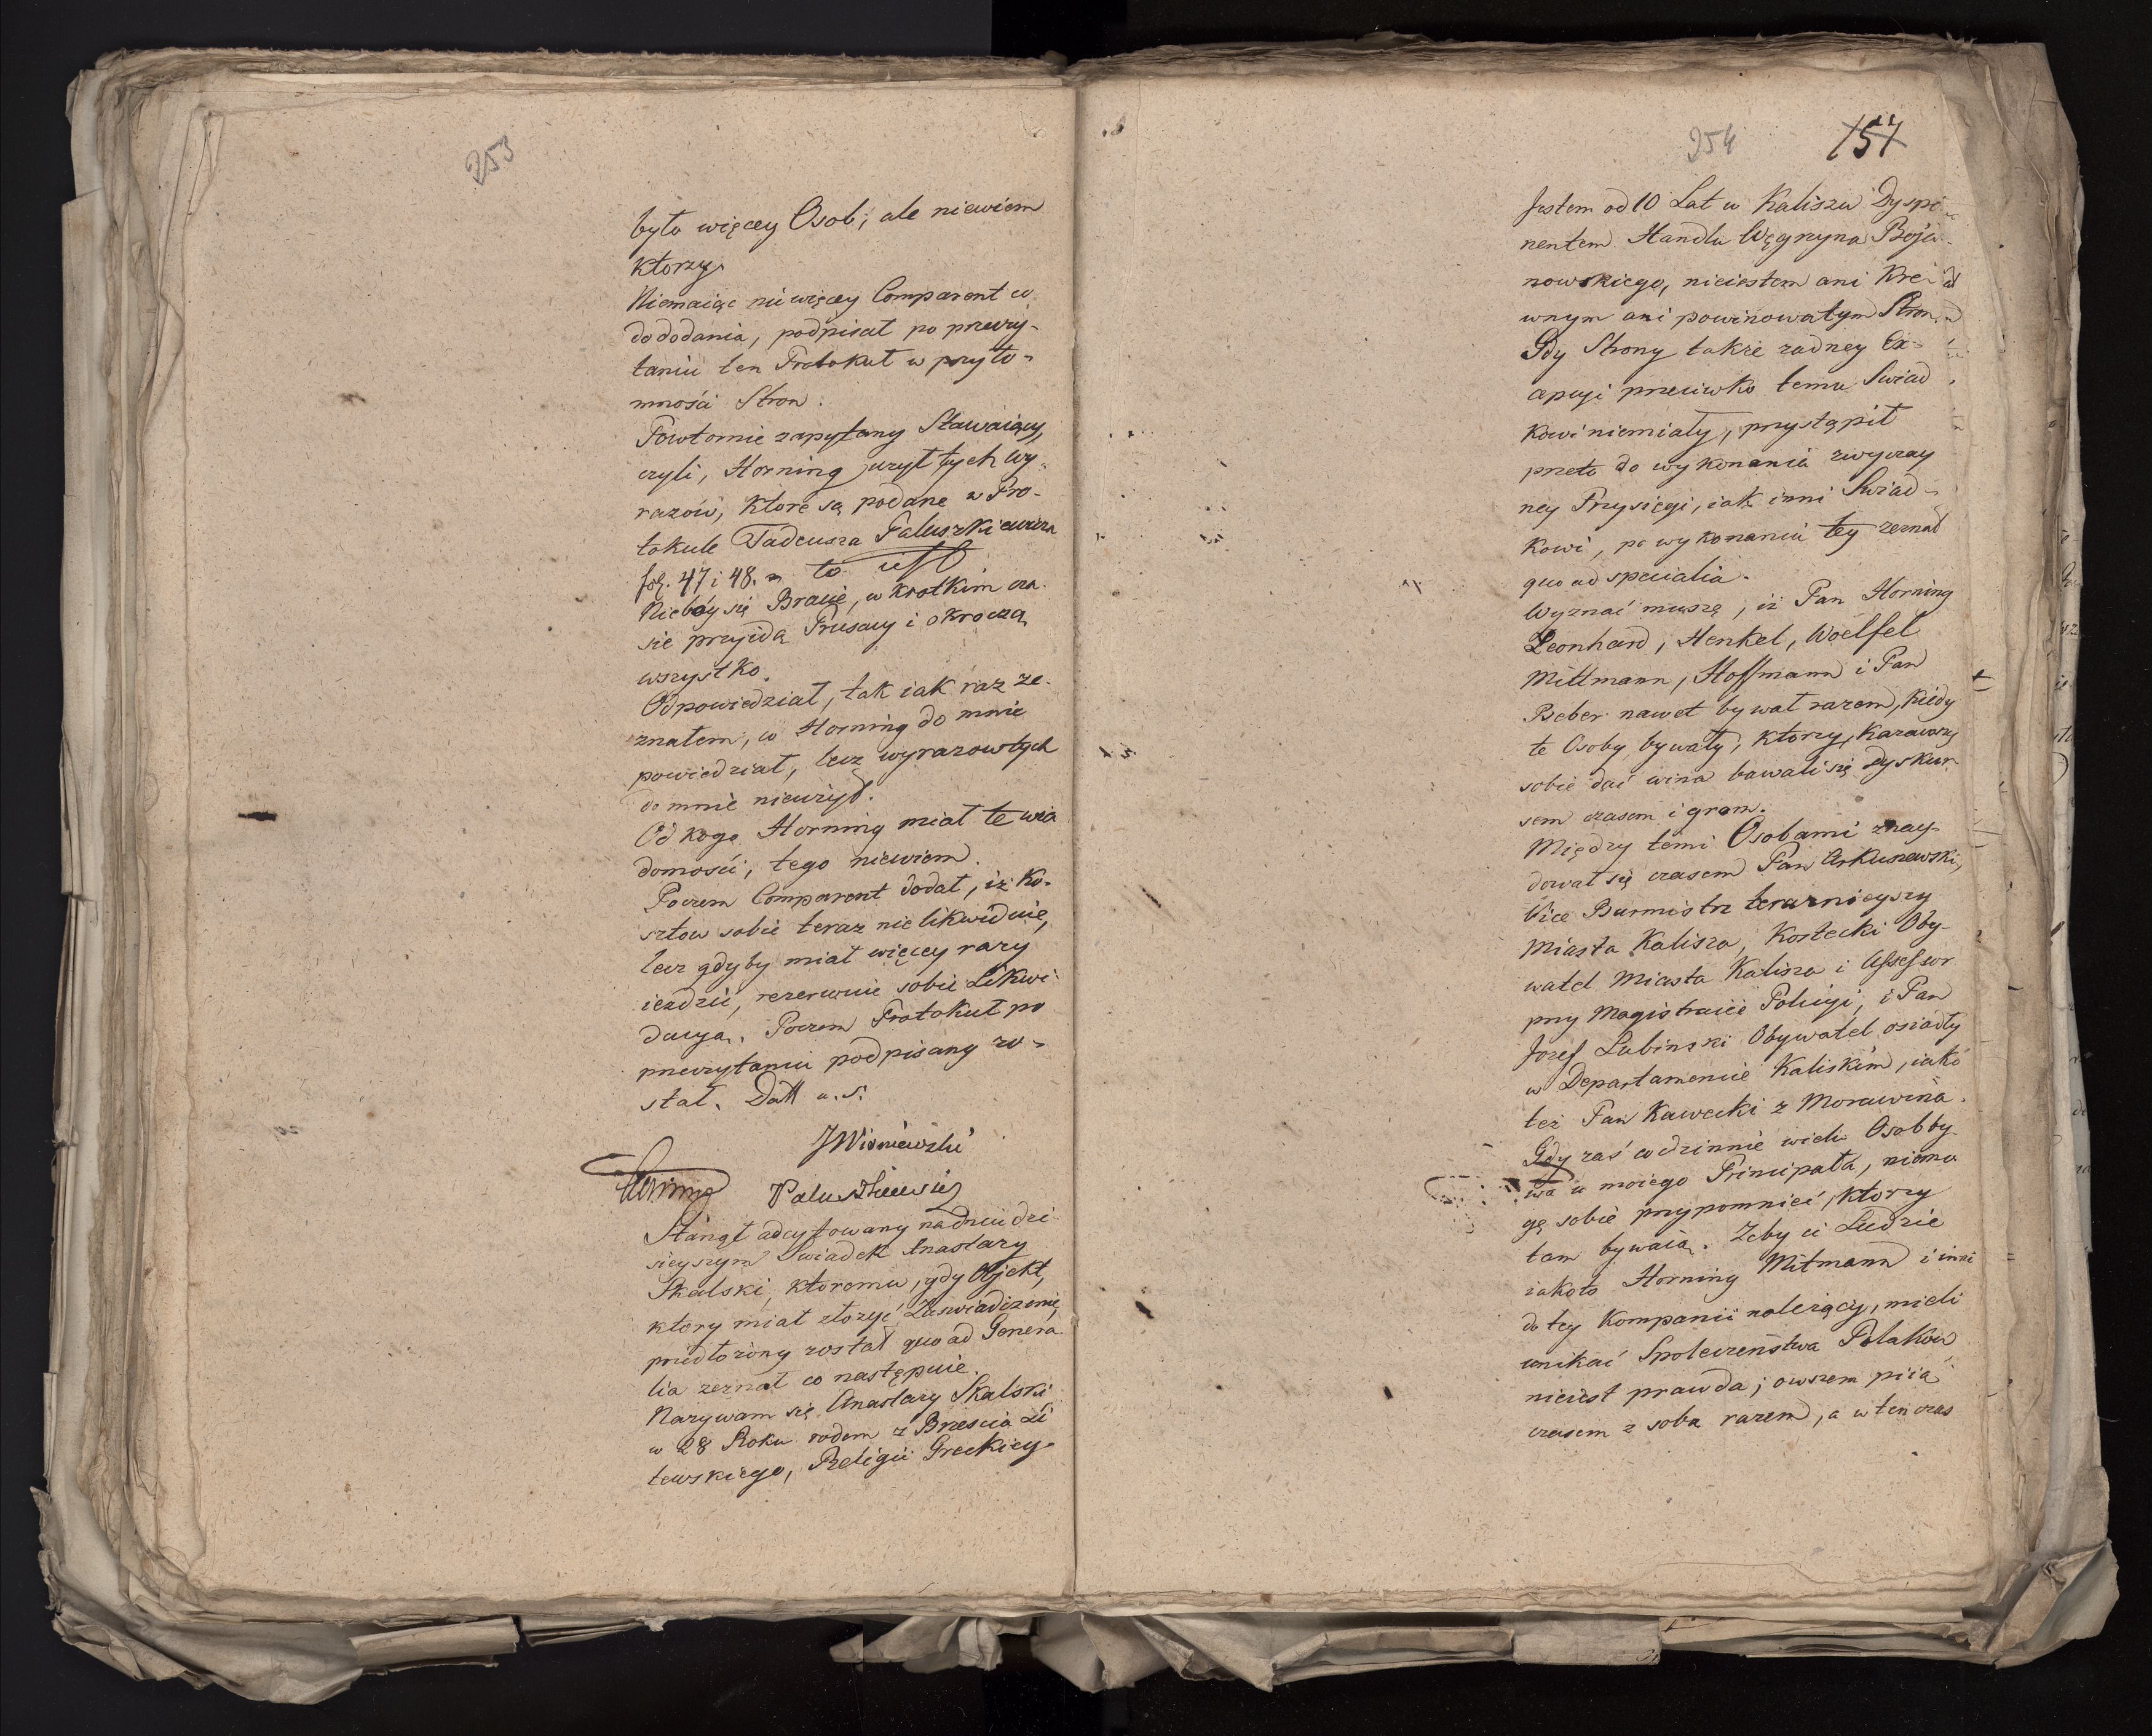 253
było więcey Osob, ale niewiem
ktorzy.
Niemaiąc nic więcey Comparent co
do dodania, podpisał po przeczy-
taniu ten Protokuł w przyto-
mności Stron.
Powtornie zapytany Stawaiący,
czyli, Horning użył tych wy-
razów, ktore są podane w Pro-
tokule Tadeusza Paluszkiewicza
fol. 47 i 48. to iest
Nieboy się Bracie, w krotkim cza
sie przyidą Prusacy i okroczą
wszystko.
Odpowiedział, tak iak raz ze-
znałem, co Horning do mnie
powiedział, lecz wyrazow tych
do mnie nieużył.
Od kogo Horning miał te wia
domości, tego niewiem.
Poczem Comparent dodał, iż Ko-
sztow sobie teraz nie likwiduie,
lecz gdyby miał więcey razy
iezdzić, rezerwuie sobie Likwi-
dacyą. Poczem Protokuł po
przeczytaniu podpisany zo-
stał. Datt u. s.
JWisniewski
Horning Paluszkiewicz
Stanął adcytowany na dniu dzi
sieyszym Swiadek Anastazy
Skalski, ktoremu, gdy Objekt,
ktory miał złożyć Zaswiadczenie,
przedłożony został quo ad Genera
lia zeznał co następuie.
Nazywam się Anastazy Skalski
w 28 Roku rodem z Brzescia Li
tewskiego, Religii Greckiey.
254 157
Jestem od 10 Lat w Kaliszu Dyspo
nentem Handlu Węgrzyna Boja-
nowskiego, nieiestem ani Kre-
wnym ani powinowatym Stron.
Gdy Strony także żadney Ex-
cepcyi przeciwko temu Swiad
kowi niemiały, przystąpił
przeto do wykonania zwyczay
ney Przysięgi, iak inni Swiad-
kowi, po wykonaniu tey zeznał
quo ad specialia.
Wyznać muszę, iż Pan Horning
Leonhard, Henkel, Woelfel
Mittmann, Hoffmann i Pan
Reber nawet bywał razem, kiedy
te Osoby bywały, ktorzy, Kazawszy
sobie dać wina bawali się dyskur
sem czasem i gram.
Między temi Osobami znay-
dował się czasem Pan Arkuszewski,
Vice Burmistrz terazniejszy
Miasta Kalisza, Kostecki Oby-
watel Miasta Kalisza i Assessor
przy Magistracie Policyi, i Pan
Jozef Lubinski Obywatel osiadły
w Departamencie Kaliskim, iako
też Pan Kawecki z Morawina.
Gdy zaś codzinnie wiele Osob by-
wa u moiego Principała, niemo
gę sobie przypomnieć, ktorzy
tam bywaią. Zeby ci Ludzie
iakoto Horning Mitmann i inni
do tey Kompanii należący, mieli
unikać Społeczeństwa Polakow
nieiest prawda; owszem piią
czasem z soba razem, a w ten czas